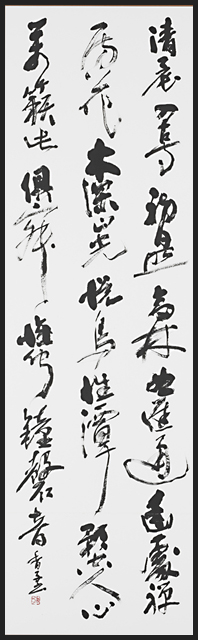 清晨入古寺初日照高林曲逕通幽處禅
房花木深山光悦鳥性潭影空人心
萬籟此俱寂惟聞鐘磬音